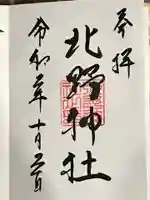 奉拝
北野神社
令和 年十月 日